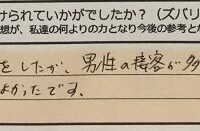 けられていかがでしたか？（ズバリ
想が、私達の何よりの力となり今後の参考と
をしたが、男性の接客が多
よかったです。